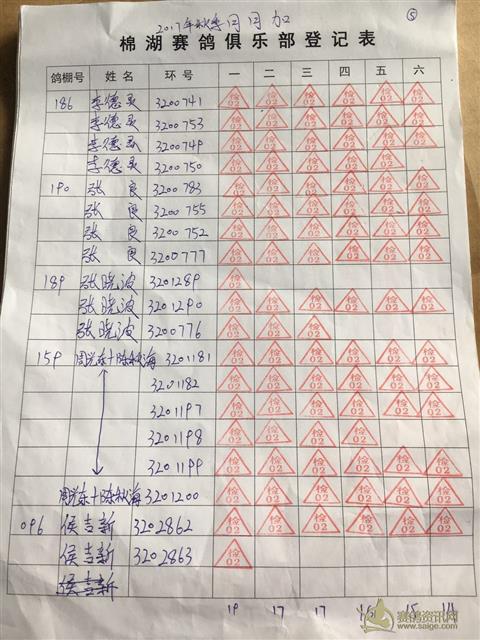 2017年秋季周周加 ⑤
棉湖赛鸽俱乐部登记表
鸽棚号 姓名 环号 一 二 三 四 五 六
186 李德灵 3200741 检02 检02 检02 检02 检02 检02
李德灵 3200753 检02 检02 检02 检02 检02 检02
李德灵 3200749 检02 检02 检02 检02 检02 检02
李德灵 3200750 检02 检02 检02 检02 检02
190 张良 3200783 检02 检02 检02 检02 检02 检02
张良 3200755 检02 检02 检02 检02 检02 检02
张良 3200752 检02 检02 检02 检02 检02 检02
张良 3200777 检02 检02 检02 检02 检02 检02
189 张晓波 3201289 检02
张晓波 3201290 检02 检02 检02 检02 检02 检02
张晓波 3200776 检02 检02 检02
159 周光东+陈秋海 3201181 检02 检02 检02 检02 检02 检02
3201182 检02 检02 检02 检02 检02 检02
3201197 检02 检02 检02 检02 检02
3201198 检02 检02 检02 检02
3201199 检02 检02 检02 检02 检02 检02
周光东+陈秋海 3201200 检02 检02 检02 检02 检02 检02
096 侯吉新 3202862 检02 检02 检02 检02 检02 检02
侯吉新 3202863 检02
侯吉新
19 17 17 16 15 14
赛鸽资讯网
www.saige.com